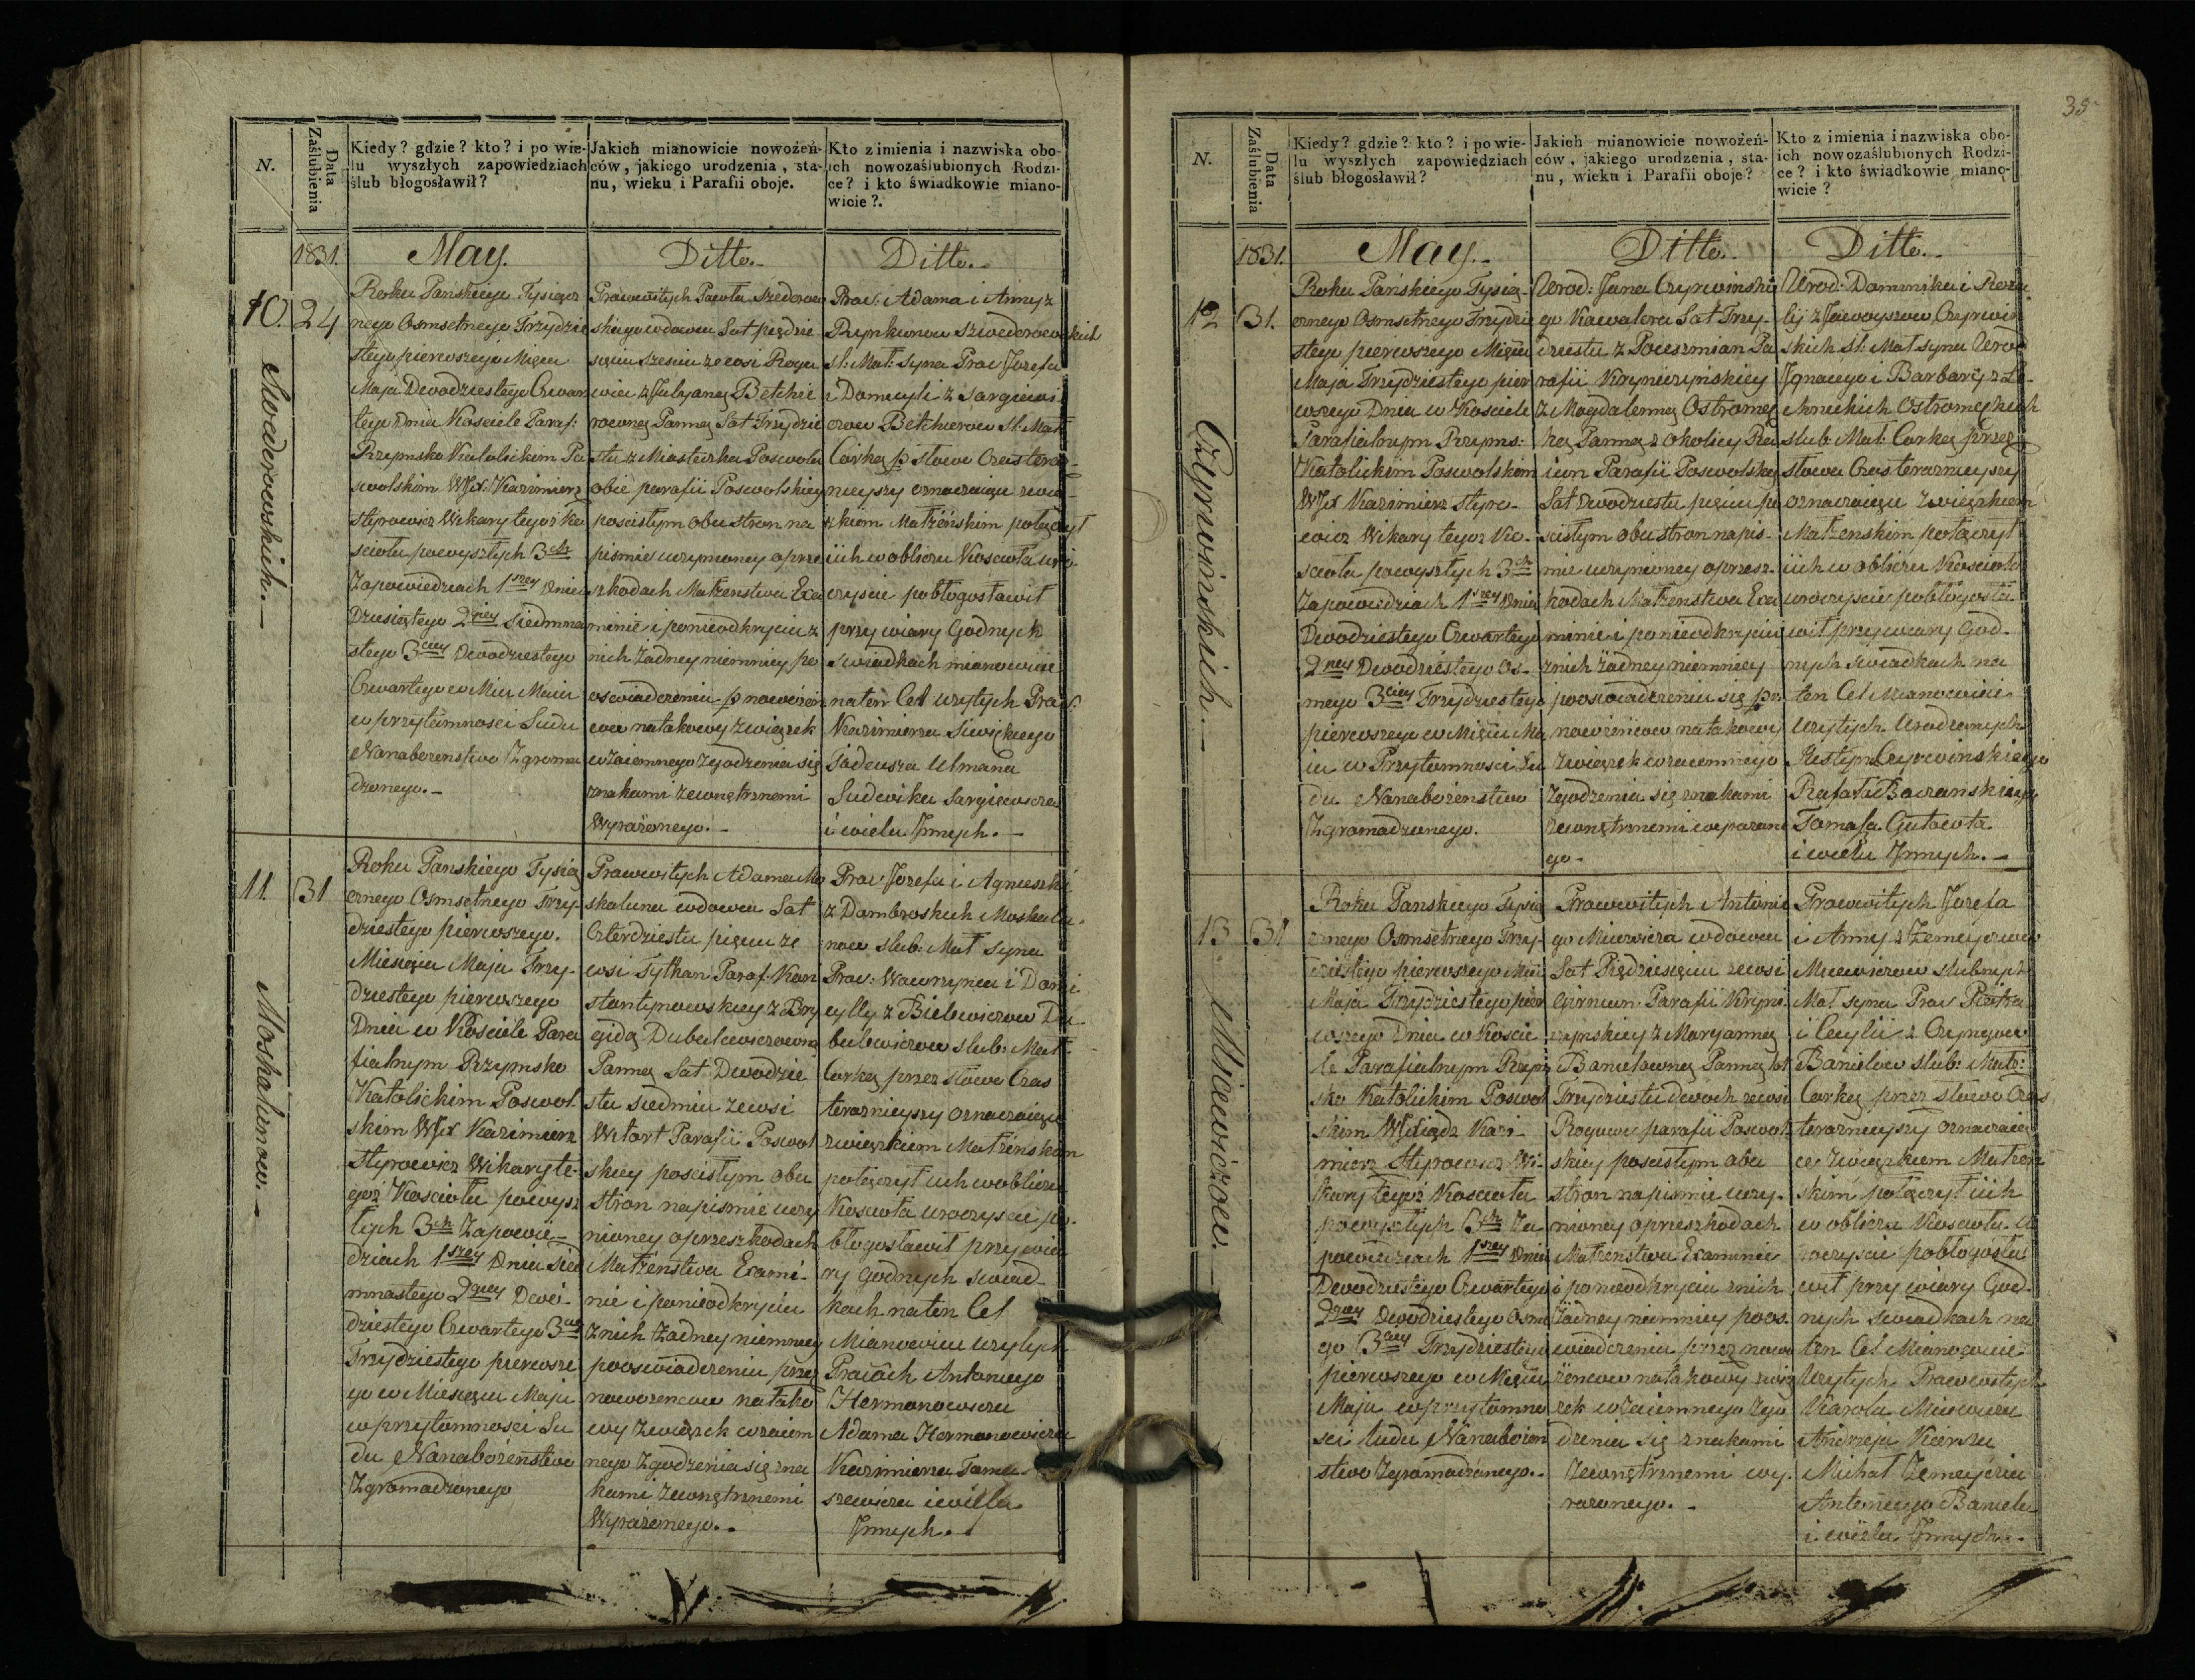 N.
Data Zaślubienia
Kiedy? gdzie? kto? i po wie-
lu wyszłych zapowiedziach
ślub błogosławił?
Jakich mianowicie nowożeń-
ców, jakiego urodzenia, sta-
nu, wieku i Parafii oboje.
Kto z imienia i nazwiska obo-
ich nowozaślubionych Rodzi-
ce? i kto świadkowie miano-
wicie?.
1831.
May.
Ditto.
Ditto.
10.
24
Szwederowskich.
Roku Panskiego Tysiącz
nego Osmsetnego Trzydzie
stego pierwszego Mięca
Maja Dwodziestego Czwar
tego Dnia Kosciele Paraf:
Rzymsko Katolickim Po
swolskim WJX: Kazimierz
Styrowicz Wikary tegoż Ko
scioła powyszłych 3ch
Zapowiedziach 1szey Dnia
Dziesiątego 2giey Siedmna
stego 3ciey Dwodziestego
Czwartego w Mcu Maiu
w przytomnosci Ludu
Nanabozenstwo Zgroma
dzonego.
Prawowitych Pawła Szwederow
skiego wdowca Lat pięcdzie
sięciu szesciu ze wsi Rogu
wiea z Julyaną Betchie
rowną Panną Lat Trzydzie
stu z Miasteczka Poswola
obie parafii Poswolskiey
poscisłym obu stron na
pismie uczynioney oprze
szkodach Małżenstwa Exa
minie i ponieodkryciu z
nich żadney niemniey po
oswiadczeniu p nowożen
cow natakowy związek
wzaiemnego zgodzenia się
znakami zewnętrznemi
Wyrażonego.
Praw: Adama i Anny z
Rynkunow Szwederowskich
sl: Mał: Syna Praw Jozefa
i Domicyli z Sargiewi
czow Betchierow Sl: Mał
Corkę p słowa Czas teraz
nieyszy oznaczaiące zwią
zkiem Małżeńskim połączył
iich w obliczu Koscioła uro
czyscie pobłogosławił
przy wiary Godnych
Swiadkach mianowicie
naten Cel użytych Praw.
Kazimierza Siwickiego
Tadeusza Ulmana
Ludwika Sargiewicza
i wielu Jnnych.
11.
31
Moskalunow.
Roku Panskiego Tysią
cznego Osmsetnego Trzy-
dziestego pierwszego.
Miesiąca Maja Trzy-
dziestego pierwszego
Dnia w Kościele Para
fialnym Rzymsko
Katolickim Poswol
skim WJX Kazimierz
Styrowicz Wikary te-
goż Koscioła powysz
łych 3ch Zapowie-
dziach 1szey Dnia Sied
mnastego 2giey Dwó-
dziestego Czwartego 3ciey
Trzydziestego pierwsze
go w Miesiącu Maju
w przytomnosci Lu
du Nanabożenstwo
Zgromadzonego
Prawowitych Adama Mo
skaluna wdowca Lat
Czterdziestu pięciu ze
wsi Tytkan Paraf: Kon
stantynowskiey z Bry
gidą Dubulewiczowną
Panną Lat Dwodzie
stu siedmiu ze wsi
Witort Parafii Poswol
skiey poscisłym obu
stron napismie uczy
nioney oprzeszkodach
Małżenstwa Exami-
nie i ponieodkryciu
z nich żadney niemniey
pooswiadczeniu przez
nowożencow natako
wy związek wzaiem
nego Zgodzenia się zna
kami zewnętrznemi
Wyrażonego.
Praw Jozefa i Agnieszki
z Dombroskich Moskalu-
now slub: Mał Syna
Praw: Wawrzynca i Domi
cylly z Bielewiczow Du
bulewiczow slub: Mał
Corkę przez słowa Czas
teraznieyszy oznaczaiące
związkiem Małżeńskim
połączył iich w obliczu
Koscioła uroczyscie po-
błogosławił przy wia
ry godnych swiad
kach na ten Cel
Mianowicie użytych
Prawch Antoniego
Hermanowicza
Adama Hermanowicza
Kazimierza Toma-
szewicza i wielu
Jnnych.
35
N.
Data Zaślubienia
Kiedy? gdzie? kto? i po wie-
lu wyszłych zapowiedziach
ślub błogosławił?
Jakich mianowicie nowożeń-
ców, jakiego urodzenia, sta-
nu, wieku i Parafii oboje?
Kto z imienia i nazwiska obo-
ich nowozaślubionych Rodzi-
ce? i kto świadkowie miano-
wicie?
1831.
May.
Ditto.
Ditto.
12
31.
Czyrwinskich.
Roku Pańskiego Tysią-
cznego Osmsetnego Trzydzie
stego pierwszego Mięca
Maja Trzydziestego pier
wszego Dnia w Kosciele
Parafialnym Rzyms:
Katolickim Poswolskim
WJX Kazimierz Styro-
wicz Wikary tegoz Ko-
scioła powyszłych 3ch
Zapowiedziach 1szey Dnia
Dwodziestego Czwartego
2giey Dwodziestego Os-
mego 3ciey Trzydziestego
pierwszego w Mięcu Ma
iu w Przytomnosci Lu
du Nanabożenstwo
Zgromadzonego.
Urod: Jana Czyrwinskie
go Kawalera Lat Trzy-
dziestu z Poczmian Pa
rafii Krynczyńskiey
z Magdaleną Ostromęc
ką Panną z okolicy Ra
iun Parafii Poswolskiey
Lat Dwodziestu pięciu po
scisłym obu stron napis-
mie uczynioney oprzesz-
kodach Małżenstwa Exa
minie i ponieodkryciu
z nich żadney niemniey
pooswiadczeniu się prz
nowożeńcow natakowy
związek wzaiemnego
Zgodzenia się znakami
zewnętrznemi wyrażone
go-
Urod: Dominika i Roza
lij z Jawoyszow Czyrwin
skich sl: Mał syna Urod
Ignacego i Barbary z Le-
Ostromęckich
slub: Mał: Corkę przez
słowa Czas teraznieyszy
oznaczaiące związkiem
Małżenskim połączył
iich w obliczu Koscioła
uroczyscie pobłogosła
wił przy wiary God-
nych swiadkach na
ten Cel Mianowicie
Użytych Urodzonych
Justyna Czyrwinskiego
Rafała Baczanskiego
Tomasza Gutowta
i wielu Jnnych.
13
31
Micewiczow.
Roku Panskiego Tysią
cznego Osmsetnego Trzy-
dziestego pierwszego Mcca
Maja Trzydziestego pier
wszego Dnia w Koscie
le Parafialnym Rzym
sko Katolickim Poswol
skim WJXiądz Kazi-
mierz Styrowicz Wi-
kary tegoż Koscioła
powyszłych 3ch Za
powiedziach 1szey Dnia
Dwodziestego Czwartego
2giey Dwodziestego Osme
go 3ciey Trzydziestego
pierwszego w Mięcu
Maju w przytomno
sci ludu Nanabożen
stwo zgromadzonego.
Prawowitych Antonie
go Micewicza wdowca
Lat Pięcdziesięciu ze wsi
Girniun Parafii Kryni
czynskiey z Maryanną
Banielowną Panną lat
Trzydziestu dwoch ze wsi
Roguwi parafii Poswol
skiey poscisłym obu
stron napismie uczy-
nioney oprzeszkodach
Małżenstwa Examinie
i ponieodkryciu z nich
żadney niemniey poos-
wiadczeniu przez nowo
żencow natakowy zwią
zek wzaiemnego Zgo
dzenia się znakami
zewnętrznemi wy-
rażonego.
Prawowitych Jozefa
i Anny z Zemeyczow
Micewiczow slubnych
Mał syna Praw Piotra
i Cecylii z Czyngow
Banielow slub: Mał:
Corkę przez słowa Czas
teraznieyszy oznaczaią
ce Związkiem Małżen
skim połączył iich
w obliczu Koscioła U
roczyscie pobłogosła
wił przy wiary God-
nych swiadkach na
ten Cel Mianowicie
Użytych Prawowitych
Karola Micewicza
Andrzeja Kiersza
Michał Zemeycia
Antoniego Baniela
i wielu Jnnych.